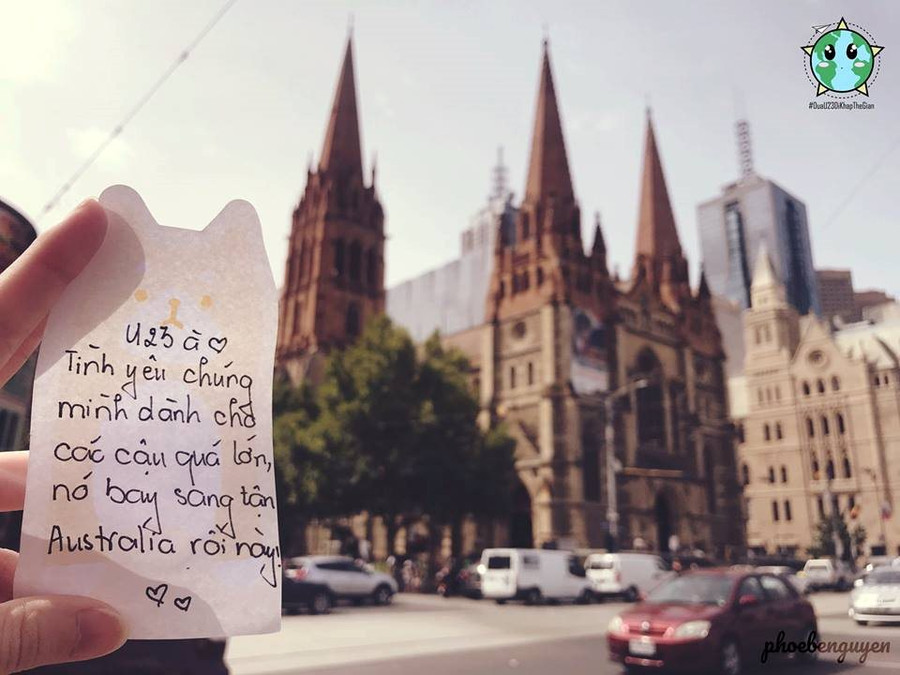 #DuaU23DiKhapTheGian
U23 à ♡
Tình yêu chúng
mình dành cho
các cậu quá lớn,
nó bay sang tận
Australia rồi này!
♡♡
phoebenguyen